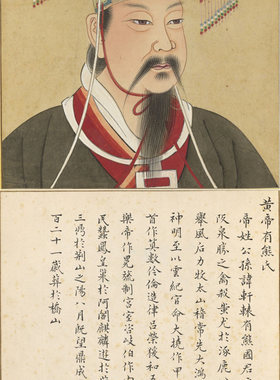 黄帝有熊氏
帝姓公孫諱軒轅有熊國君
阪泉勝之禽殺蚩尤於涿鹿
舉風后力牧太山稽常先大鴻
神明至以雲紀官命大撓作甲
首作算數伶倫造律呂榮後和五
樂帝作冕制宮室咨岐伯作
民蠶鳳皇巢於阿閣麒麟遊於
三鼎於荆山之陽八月既望鼎成
百二十一歲葬於橋山